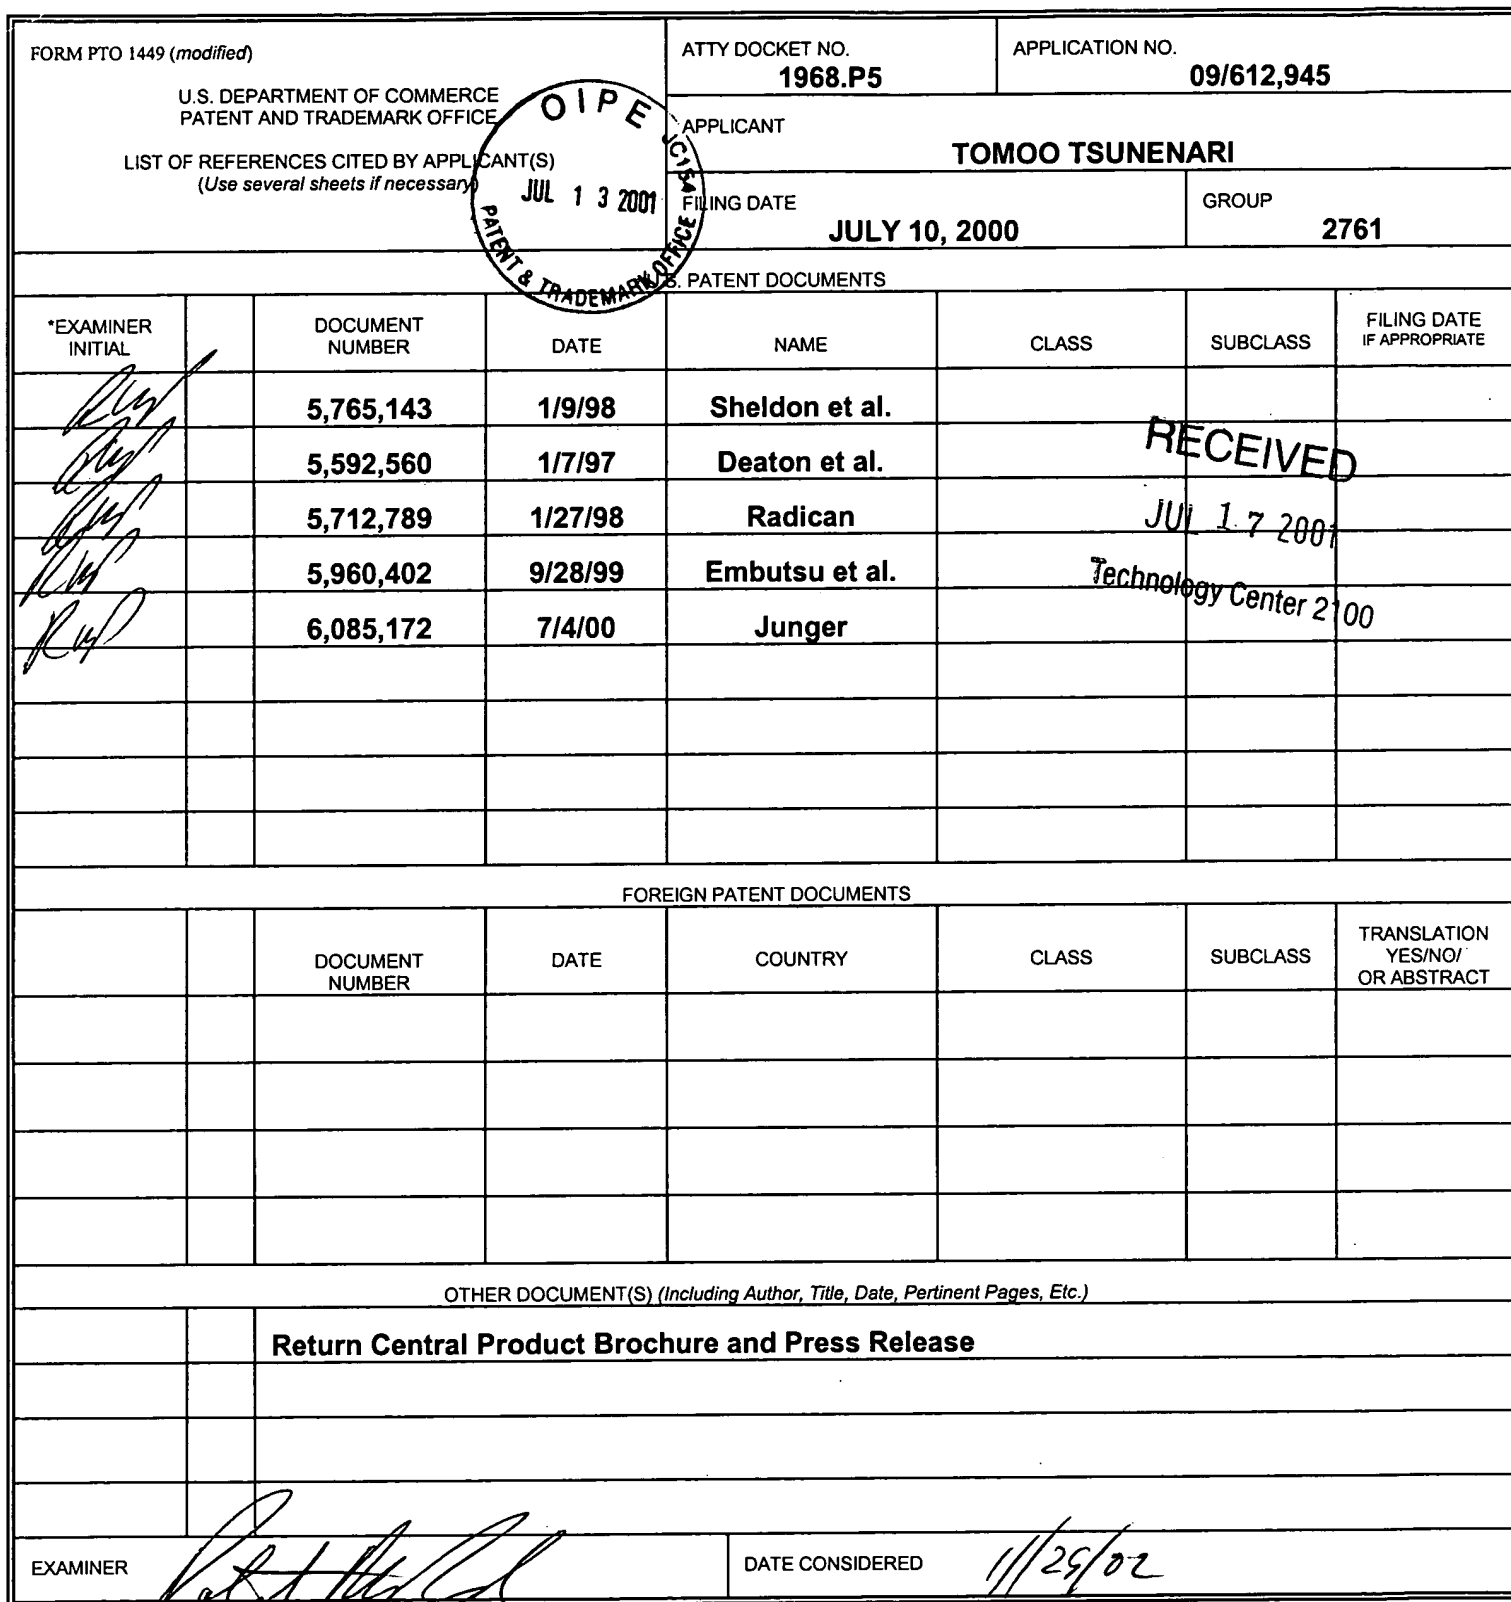 FORM PTO 1449 (modified)
U.S. DEPARTMENT OF COMMERCE
PATENT AND TRADEMARK OFFICE
LIST OF REFERENCES CITED BY APPLICANT(S)
(Use several sheets if necessary)
OIPE JC154
JUL 1 3 2001
PATENT & TRADEMARK OFFICE
ATTY DOCKET NO.
1968.P5
APPLICATION NO.
09/612,945
APPLICANT
TOMOO TSUNENARI
FILING DATE
JULY 10, 2000
GROUP
2761
S. PATENT DOCUMENTS
*EXAMINER INITIAL DOCUMENT NUMBER DATE NAME CLASS SUBCLASS FILING DATE IF APPROPRIATE
5,765,143 1/9/98 Sheldon et al.
5,592,560 1/7/97 Deaton et al.
5,712,789 1/27/98 Radican
5,960,402 9/28/99 Embutsu et al.
6,085,172 7/4/00 Junger
RECEIVED
JUL 1 7 2001
Technology Center 2100
FOREIGN PATENT DOCUMENTS
DOCUMENT NUMBER DATE COUNTRY CLASS SUBCLASS TRANSLATION YES/NO/ OR ABSTRACT
OTHER DOCUMENT(S) (Including Author, Title, Date, Pertinent Pages, Etc.)
Return Central Product Brochure and Press Release
EXAMINER
DATE CONSIDERED 11/25/02